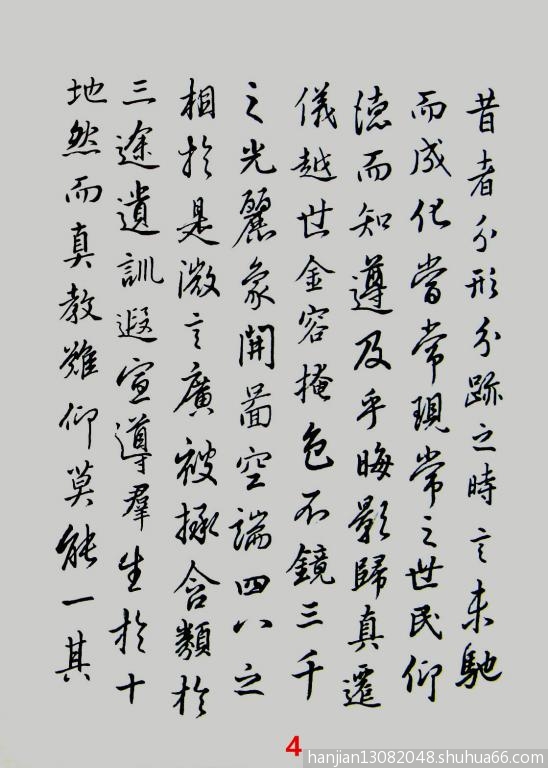 昔者分形分跡之時言未馳
而成化當常現常之世民仰
德而知遵及乎晦影歸真遷
儀越世金容掩色不鏡三千
之光麗象開啚空端四八之
相於是微言廣被拯含類於
三途遺訓遐宣導羣生於十
地然而真教難仰莫能一其
4
hanjian13082048.shuhua66.com